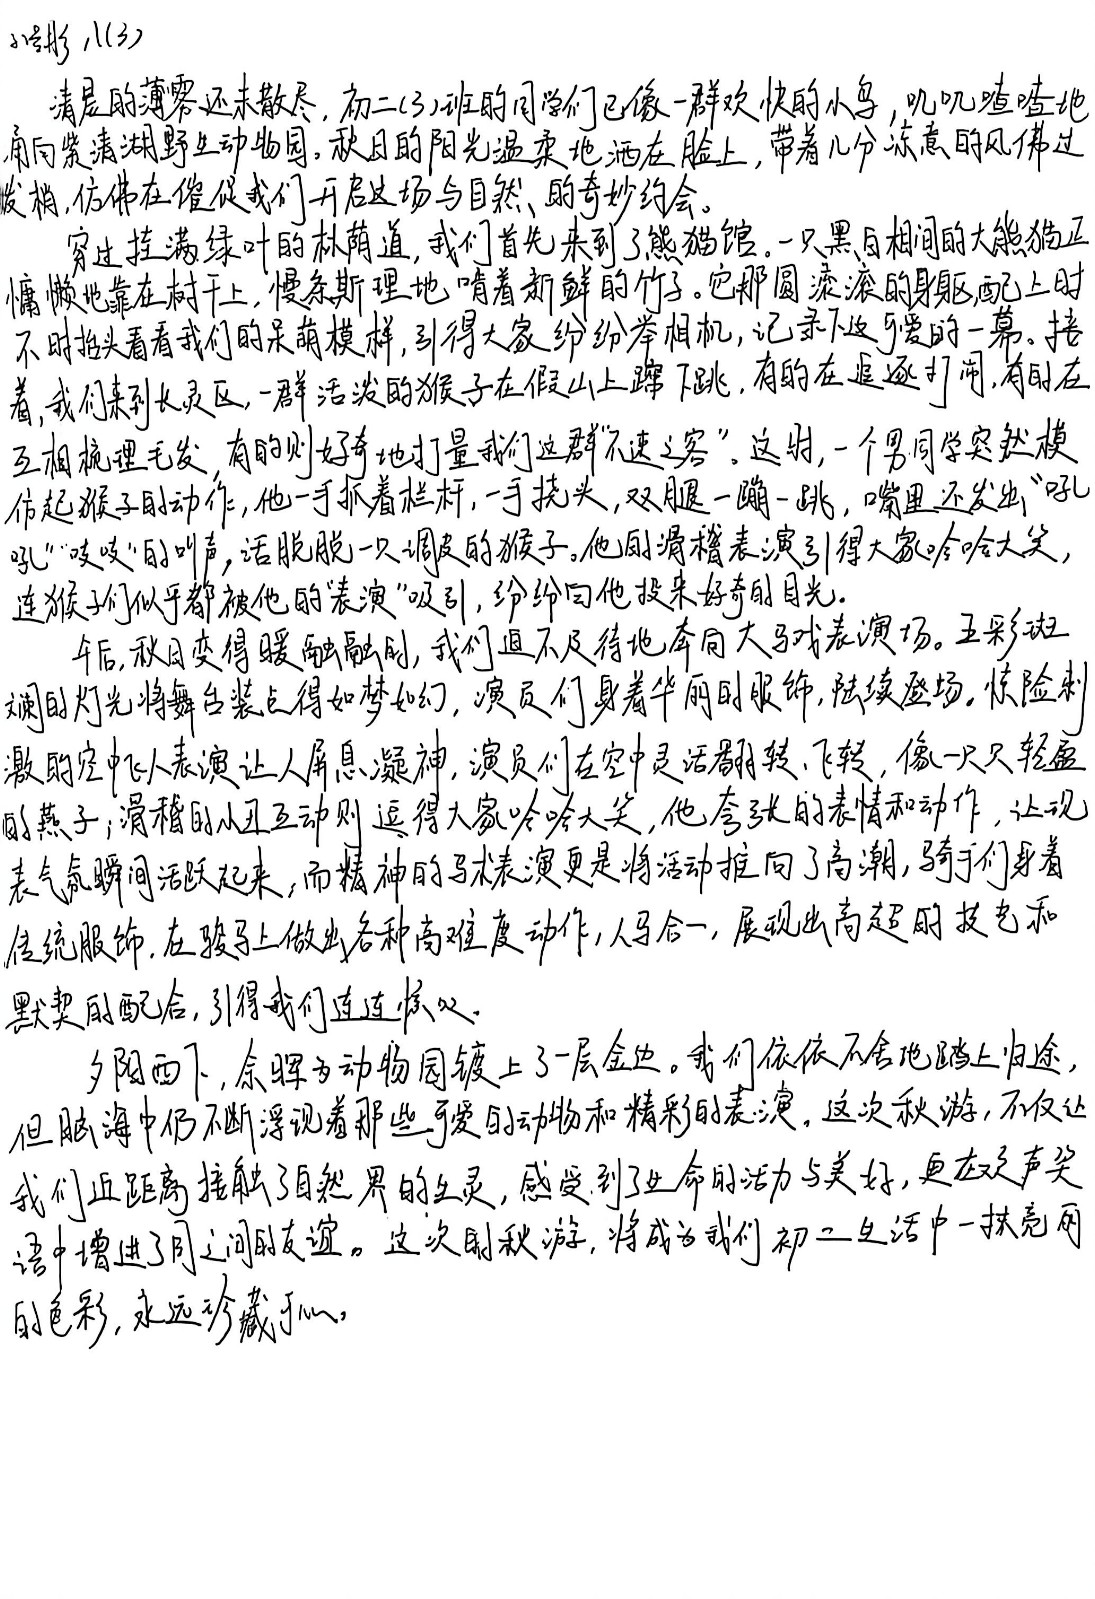 八(3)
清晨的薄雾还未散尽，初二(3)班的同学们已像一群欢快的小鸟，叽叽喳喳地
涌向紫清湖野生动物园。秋日的阳光温柔地洒在脸上，带着几分凉意的风佛过
发梢，仿佛在催促我们开启这场与自然、的奇妙约会。
穿过挂满绿叶的林荫道，我们首先来到了熊猫馆。一只黑白相间的大熊猫正
慵懒地靠在树干上，慢条斯理地啃着新鲜的竹子。它那圆滚滚的身躯，配上时
不时抬头看看我们的呆萌模样，引得大家纷纷举相机，记录下这可爱的一幕。接
着，我们来到长灵区，一群活泼的猴子在假山上蹿下跳，有的在追逐打闹，有的在
互相梳理毛发，有的则好奇地打量我们这群“不速之客”。这时，一个男同学突然模
仿起猴子的动作，他一手抓着栏杆，一手挠头，双腿一蹦一跳，嘴里还发出“吼
吼”“吱吱”的叫声，活脱脱一只调皮的猴子。他的滑稽表演引得大家哈哈大笑，
连猴子们似乎都被他的“表演”吸引，纷纷向他投来好奇的目光。
午后，秋日变得暖融融的，我们迫不及待地奔向大马戏表演场。五彩斑
斓的灯光将舞台装点得如梦如幻，演员们身着华丽的服饰，陆续登场。惊险刺
激的空中飞人表演让人屏息凝神，演员们在空中灵活翻转、飞转，像一只只轻盈
的燕子；滑稽的小丑互动则逗得大家哈哈大笑，他夸张的表情和动作，让现
表气氛瞬间活跃起来，而精神的马术表演更是将活动推向了高潮，骑手们身着
传统服饰，在骏马上做出各种高难度动作，人马合一，展现出高超的技艺和
默契的配合，引得我们连连惊叹。
夕阳西下，余晖为动物园镀上了一层金边。我们依依不舍地踏上归途，
但脑海中仍不断浮现着那些可爱的动物和精彩的表演。这次秋游，不仅让
我们近距离接触了自然界的生灵，感受到了生命的活力与美好，更在欢声笑
语中增进了同之间的友谊。这次的秋游，将成为我们初二生活中一抹亮丽
的色彩，永远珍藏于心。